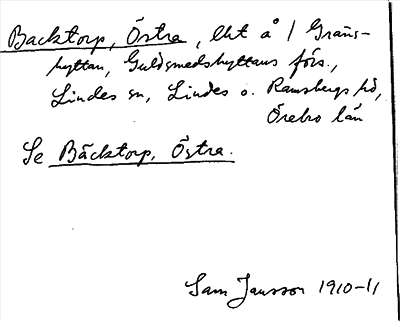 Backtorp, Östra, lht å 1 Gräns-
hyttan, Guldsmedshyttans förs.,
Lindes sn, Lindes o. Ramsbergs hd,
Örebro län
Se Bäcktorp, Östra.
Sam Jansson 1910-11